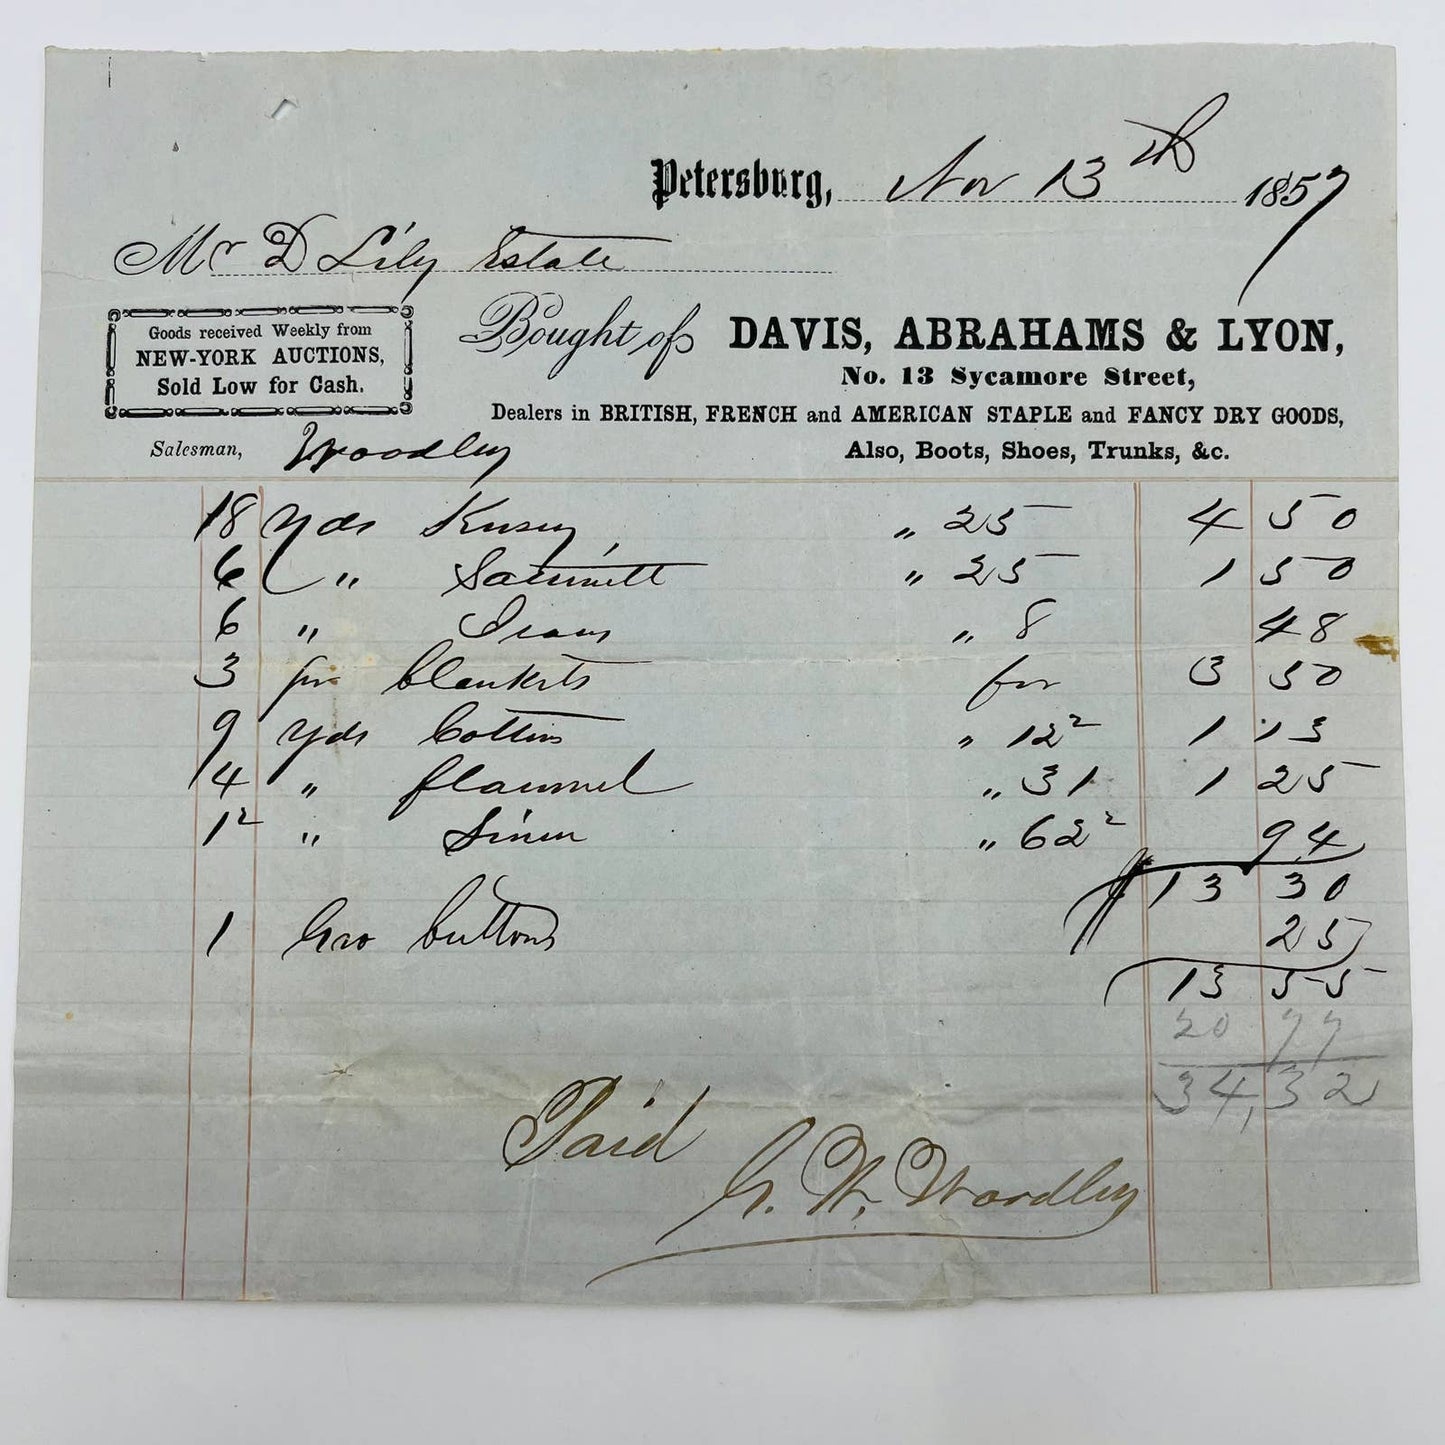 Petersburg, Nov 13th 1857
Mr D Lily Estate
Goods received Weekly from
NEW-YORK AUCTIONS,
Sold Low for Cash.
Bought of DAVIS, ABRAHAMS & LYON,
No. 13 Sycamore Street,
Dealers in BRITISH, FRENCH and AMERICAN STAPLE and FANCY DRY GOODS,
Also, Boots, Shoes, Trunks, &c.
Salesman, Woodley
18 yds Kersey " 25 4 50
6 " " 25 1 50
6 " " 8 48
3 pr blankets for 3 50
9 yds Cotton " 12² 1 13
4 " flannel " 31 1 25
1² " Linen " 62² 94
$13 30
1 Gro buttons 25
13 55
20 77
34,32
Paid
G. W. Woodley